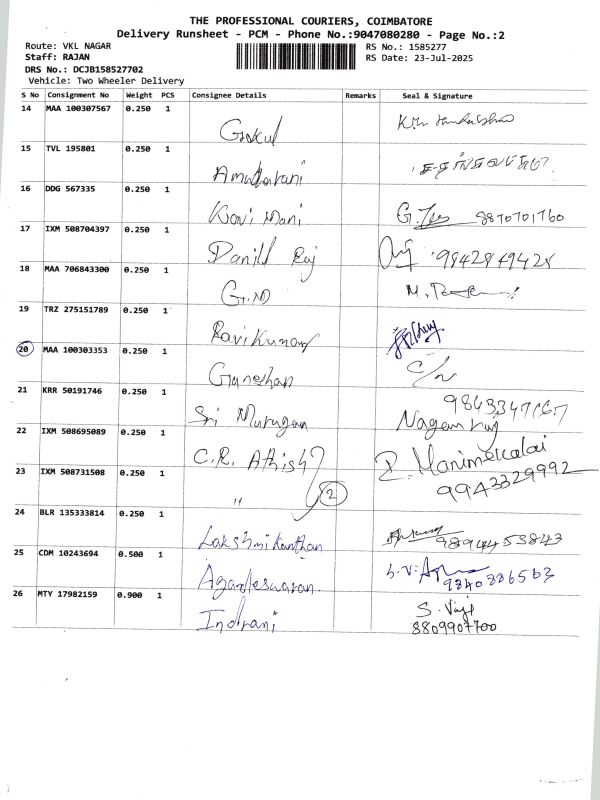 THE PROFESSIONAL COURIERS, COIMBATORE
Delivery Runsheet - PCM - Phone No.:9047080280 - Page No.:2
Route: VKL NAGAR RS No.: 1585277
Staff: RAJAN RS Date: 23-Jul-2025
DRS No.: DCJB158527702
Vehicle: Two Wheeler Delivery
S No Consignment No Weight PCS Consignee Details Remarks Seal & Signature
14 MAA 100307567 0.250 1 Gokul
15 TVL 195801 0.250 1 Amutharani
16 DDG 567335 0.250 1 Kavi Mani 8870701760
17 IXM 508704397 0.250 1 Daniel Raj 9842849428
18 MAA 706843300 0.250 1 G.M
19 TRZ 275151789 0.250 1 Ravikumar
20 MAA 100303353 0.250 1 Ganeshan C/N
21 KRR 50191746 0.250 1 Sri Murugan 9843347167
Nagamraj
22 IXM 508695089 0.250 1 C.R. Athish P. Manimekalai
23 IXM 508731508 0.250 1 " 2 9943329992
24 BLR 135333814 0.250 1 Lakshmikanthan 9894453843
25 CDM 10243694 0.500 1 Agardeswaran 9840886563
26 MTY 17982159 0.900 1 Indrani S. Viji
8809907700